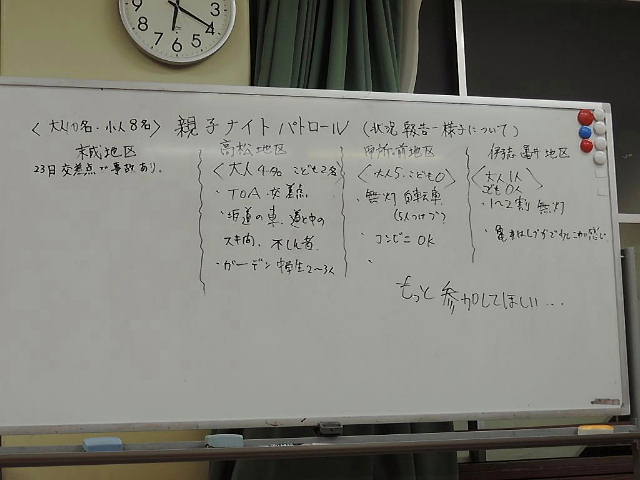 9 8 7 6 5 4 3
〈大人10名・小人8名〉 親子ナイトパトロール (状況報告-様子について)
末成地区
23日交差点で事故あり。
高松地区
〈大人4名 こども2名〉
・TOA 交差点
・坂道の車、道と中の
スキ間、不しん者
・ガーデン 中学生2~3人
地区
〈大人5.こども0〉
・無灯 自転車
(5人つけづ)
・コンビニ OK
・
伊孑志 亀井地区
〈大人1人
こども0人〉
・1~2割 無灯
もっと参加してほしい...